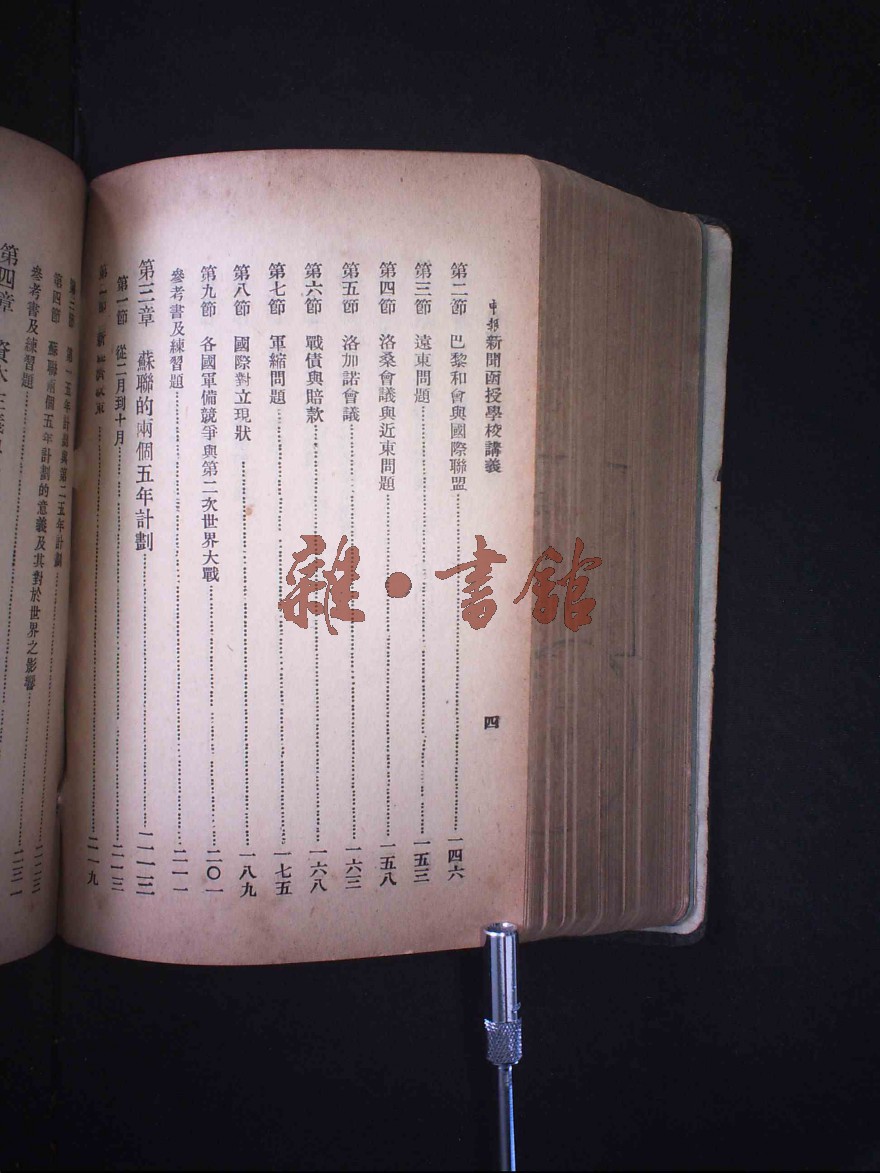 申報新聞函授學校講義
四
第二節 巴黎和會與國際聯盟……一四六
第三節 遠東問題……一五三
第四節 洛桑會議與近東問題……一五八
第五節 洛加諾會議……一六三
第六節 戰債與賠款……一六八
第七節 軍縮問題……一七五
第八節 國際對立現狀……一八九
第九節 各國軍備競爭與第二次世界大戰……二〇一
參考書及練習題……二一一
第三章 蘇聯的兩個五年計劃……二一三
第一節 從二月到十月……二一三
二一九
第一五年計劃與第二五年計劃
第四節 蘇聯兩個五年計劃的意義及其對於世界之影響……二二三
參考書及練習題……二三一
第四章 資本主義
雜·書館